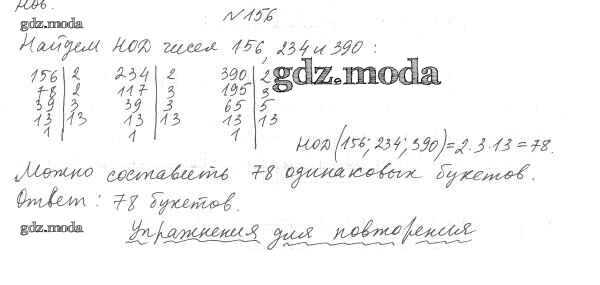 Нов.
gdz.moda
№156
Найдем НОД чисел 156, 234 и 390:
156|2 234|2 390|2
gdz.moda
78|2 117|3 195|3
39|3 39|3 65|5
13|13 13|13 13|13
1 1 1
НОД(156; 234; 390)=2·3·13=78.
Можно составить 78 одинаковых букетов.
Ответ: 78 букетов.
gdz.moda
Упражнения для повторения